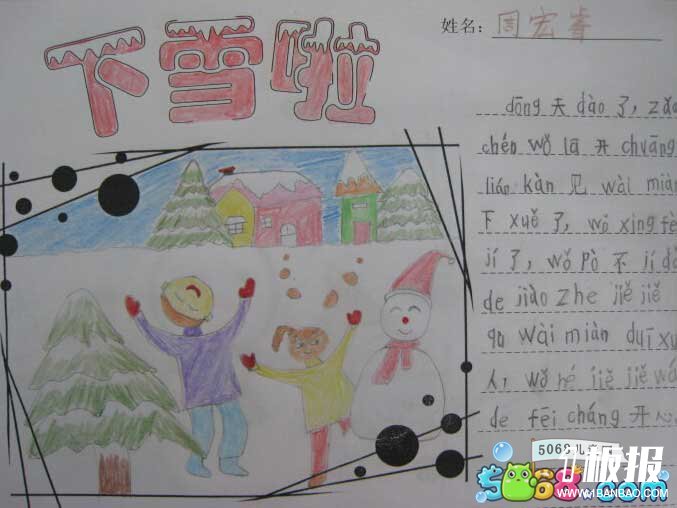 下雪啦
姓名：周宏睿
dōng 天 dào 了，zǎo
chén wǒ lā 开 chuāng
lián kàn 见 wài miàn
下 xuě 了，wǒ xīng fèn
jí 了，wǒ Pò 不 jí dài
de jiào zhe jiě jiě
qu wài miàn duī xu
人，wǒ hé jiě jiě wá
de fēi cháng 开心
5068儿童
小板报
5068
WWW.41BANBAO.COM